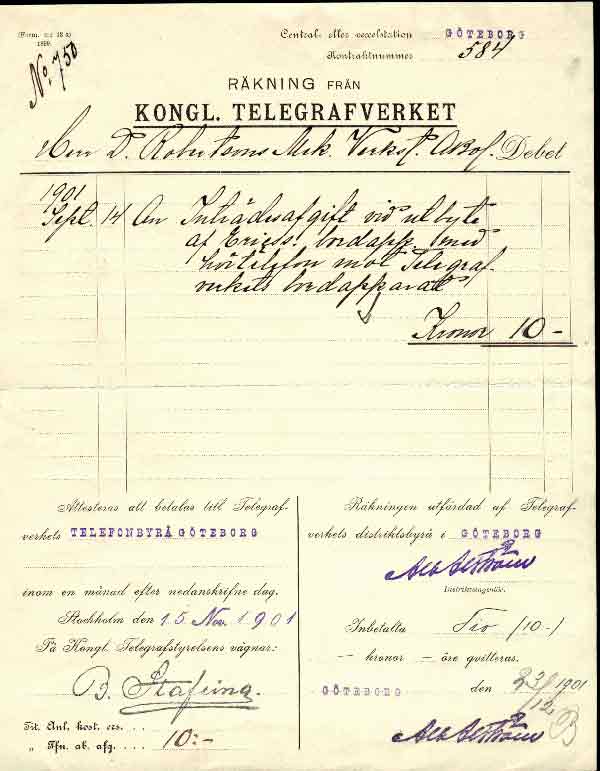 (Form. ser 18 a)
1899.
N:o 750
Central- eller vexelstation GÖTEBORG
Kontraktnummer 584
RÄKNING FRÅN
KONGL. TELEGRAFVERKET
Herr D. Robertsons Mek. Verkst. Debet
1901
Sept. 14 An Inträdesafgift vid utbyte
af Ericss. bordapp. med
hörtelefon mot Telegraf-
verkets bordapparat
Kronor 10 –
Attesteras att betalas till Telegraf-
verkets TELEFONBYRÅ GÖTEBORG
inom en månad efter nedanskrifne dag.
Stockholm den 15. Nov. 1901
På Kongl. Telegrafstyrelsens vägnar:
B.
Tit. Anl. kost. ers. . . .
„ Afn. ab. afg. . . . . 10:-
Räkningen utfärdad af Telegraf-
verkets distriktsbyrå i GÖTEBORG
Inbetalta Tio /10-/
— kronor — öre qvitteras.
GÖTEBORG den 23/12 1901